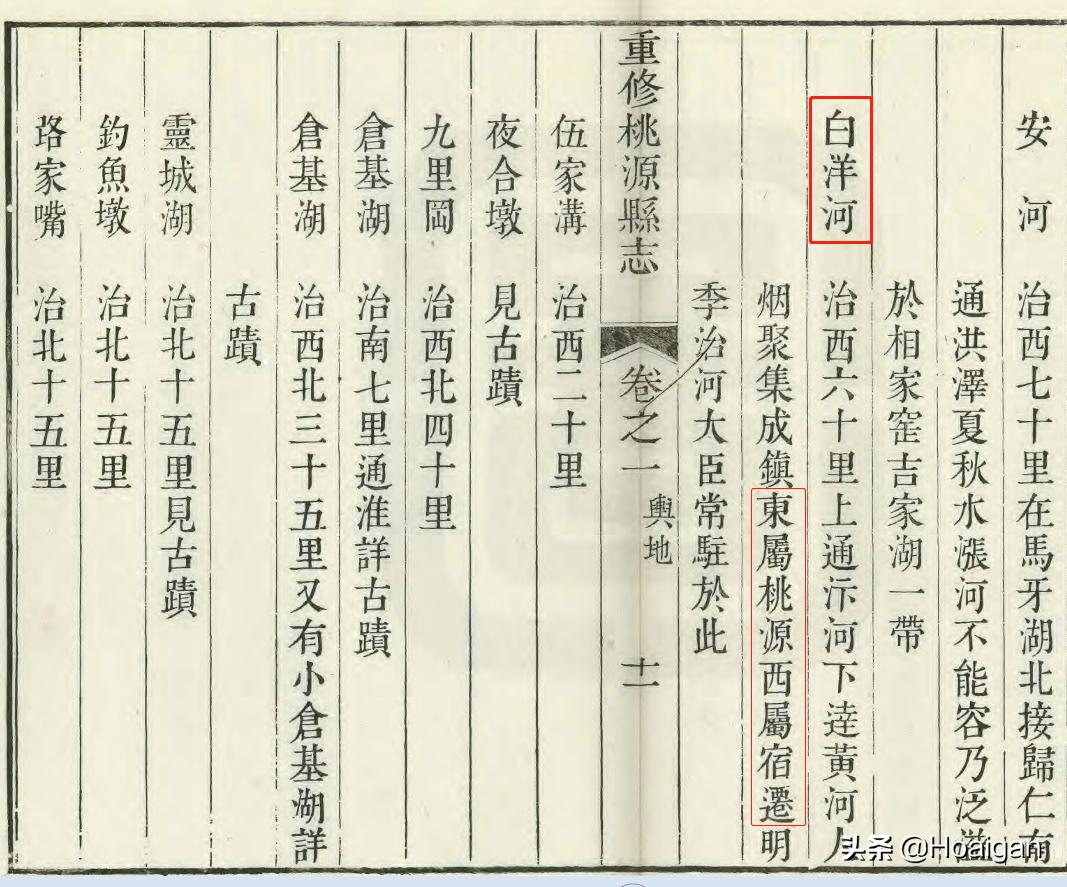 安　河　治西七十里在馬牙湖北接歸仁南
通洪澤夏秋水漲河不能容乃泛溢
於相家窑吉家湖一帶
白洋河　治西六十里上通汴河下逹黃河人
烟聚集成鎮東屬桃源西屬宿遷明
季治河大臣常駐於此
重修桃源縣志　卷之一　輿地　十一
伍家溝　治西二十里
夜合墩　見古蹟
九里岡　治西北四十里
倉基湖　治南七里通淮詳古蹟
倉基湖　治西北三十五里又有小倉基湖詳
古蹟
靈城湖　治北十五里見古蹟
釣魚墩　治北十五里
路家嘴　治北十五里
头条 @Hoaigan